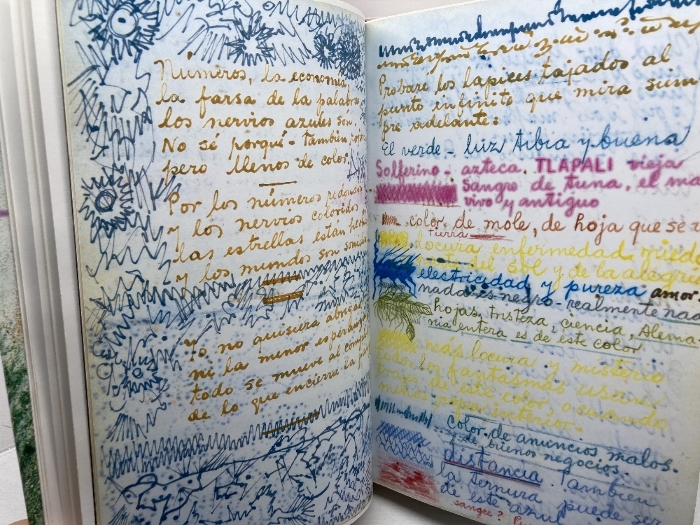 Números, la economía,
la farsa de la palabra
los nervios azules son.
No sé porqué - también
pero llenos de color.
Por los números redondos
y los nervios coloridos
las estrellas están
y los mundos son
Yo no quisiera
ni la menor esperanza
todo se mueve al
de lo que encierra la
Probare los lapices tajados al
punto infinito que mira siem
pre adelante:
El verde - luz tibia y buena
Solferino - azteca. TLAPALI vieja
Sangre de tuna, el mas
vivo y antiguo
color de mole, de hoja que se
tierra
locura enfermedad miedo
del sol y de la alegría
electricidad y pureza amor
nada es negro - realmente nada
hojas, tristeza, ciencia, Alema-
nia entera es de este color
mas locura y misterio
todos los fantasmas usan
de este color, o cuando
color de anuncios malos.
y de buenos negocios.
distancia. Tambien
la ternura puede ser
de este azul
sangre?